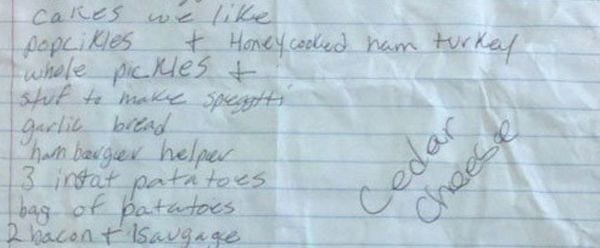 cakes we like
popcikles + Honeycooked ham turkey
whole pickles +
stuf to make spegotti
garlic bread
hambarger helper
3 intat patatoes
bag of patatoes
2 bacon + 1saugage
cedar
cheese